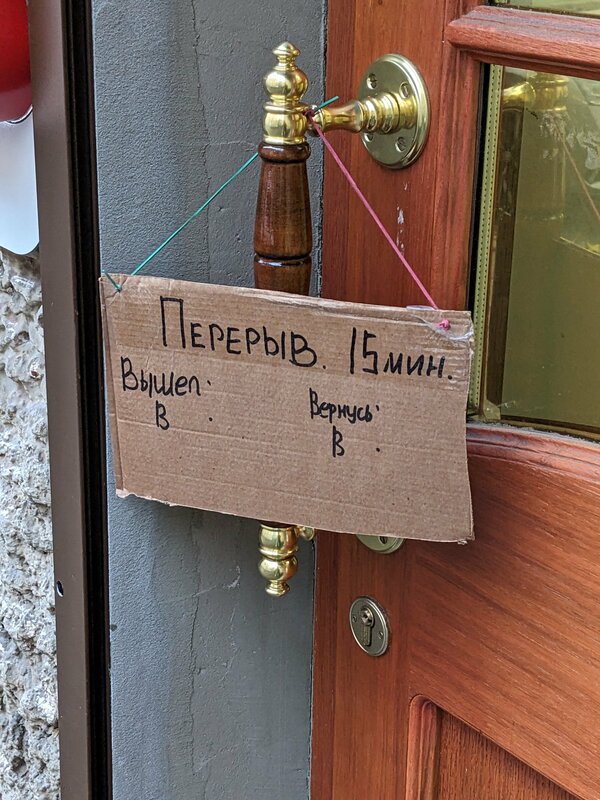 Перерыв. 15 мин.
Вышел: Вернусь:
В : В :